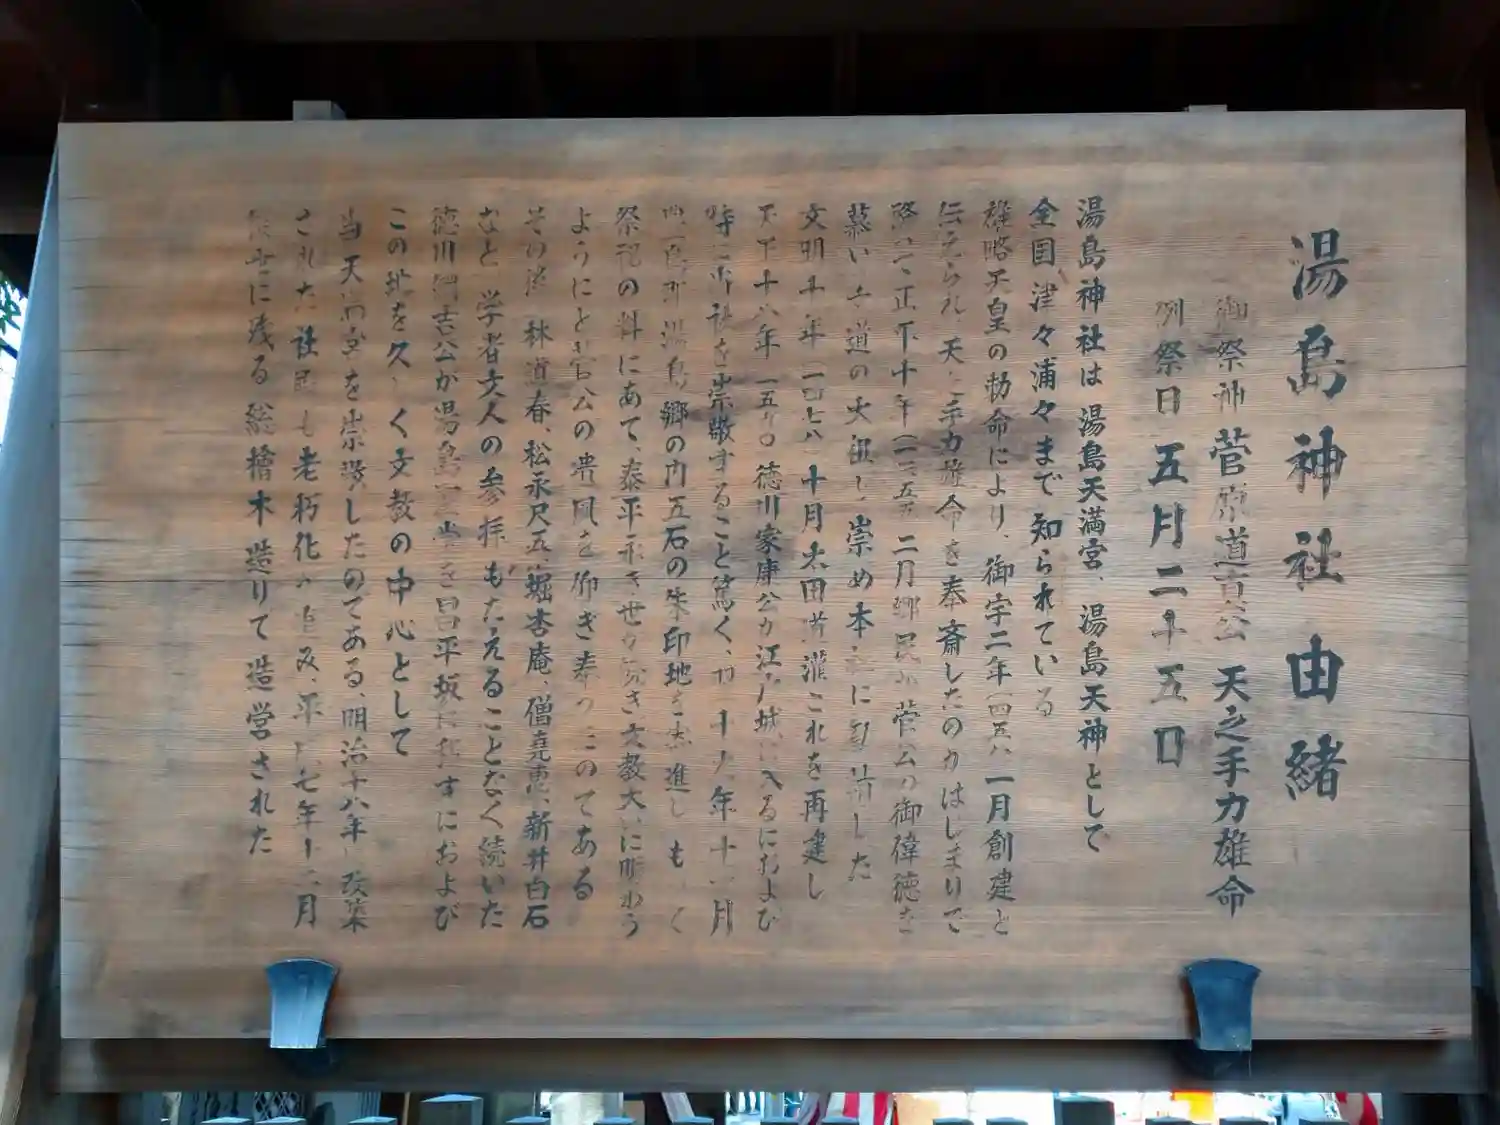 湯島神社由緒
御祭神 菅原道真公 天之手力雄命
例祭日 五月二十五日
湯島神社は湯島天満宮、湯島天神として
全国津々浦々まで知られている
雄略天皇の勅命により、御宇二年(四五八)一月創建と
伝えられ、天之手力雄命を奉斎したのがはじまりで
降って正平十年(一三五五)二月郷民が菅公の御偉徳を
慕い、文道の大祖と崇め本社に勧請した
文明十年(一四七八)十月太田道灌これを再建し
天正十八年(一五九〇)徳川家康公が江戸城に入るにおよび
時に当社を崇敬すること篤く、 十九年十一月
湯島郷の内五石の朱印地を寄進し もって
祭祀の料にあて、泰平永き世が続き文教大いに賑わう
ようにと菅公の遺風を仰ぎ奉ったのである
その後、林道春、松永尺五、堀杏庵、僧堯恵、新井白石
など、学者文人の参拝もたえることなく続いた
徳川綱吉公が湯島聖堂を昌平坂に移すにおよび
この地を久しく文教の中心として
当天満宮を崇敬したのである、明治十八年に改築
された社殿も老朽化が進み、平成七年十二月
後世に残る総檜木造りで造営された